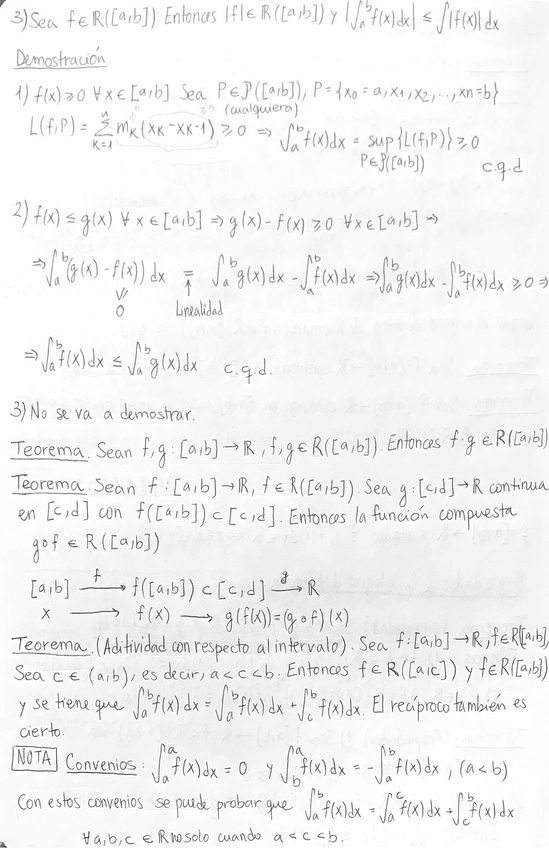 3) Sea f∈R([a,b]) Entonces |f|∈R([a,b]) y |∫_a^b f(x)dx| ≤ ∫|f(x)|dx
Demostración
1) f(x) ≥ 0 ∀x∈[a,b]. Sea P∈𝒫([a,b]), P = {x₀ = a, x₁, x₂, ..., xn = b}
(cualquiera)
L(f,P) = Σ_{K=1}^n m_K (x_K - x_{K-1}) ≥ 0 ⇒ ∫_a^b f(x)dx = sup{L(f,P)} ≥ 0
P∈𝒫([a,b])
c.q.d
2) f(x) ≤ g(x) ∀x∈[a,b] ⇒ g(x) - f(x) ≥ 0 ∀x∈[a,b] ⇒
⇒ ∫_a^b (g(x) - f(x)) dx = ∫_a^b g(x)dx - ∫_a^b f(x)dx ⇒ ∫_a^b g(x)dx - ∫_a^b f(x)dx ≥ 0 ⇒
≥ 0 ↑ Linealidad
⇒ ∫_a^b f(x)dx ≤ ∫_a^b g(x)dx c.q.d.
3) No se va a demostrar.
Teorema. Sean f,g : [a,b] → ℝ, f,g ∈ R([a,b]). Entonces f·g ∈ R([a,b])
Teorema Sean f : [a,b] → ℝ, f ∈ R([a,b]). Sea g : [c,d] → ℝ continua
en [c,d] con f([a,b]) ⊂ [c,d]. Entonces la función compuesta
g∘f ∈ R([a,b])
[a,b] —f→ f([a,b]) ⊂ [c,d] —g→ ℝ
x → f(x) → g(f(x)) = (g∘f)(x)
Teorema. (Aditividad con respecto al intervalo). Sea f : [a,b] → ℝ, f∈R([a,b],
Sea c ∈ (a,b), es decir, a < c < b. Entonces f∈R([a,c]) y f∈R([a,b])
y se tiene que ∫_a^b f(x)dx = ∫_a^b f(x)dx + ∫_c^b f(x)dx. El recíproco también es
cierto.
NOTA Convenios: ∫_a^a f(x)dx = 0 y ∫_b^a f(x)dx = -∫_a^b f(x)dx, (a < b)
Con estos convenios se puede probar que ∫_a^b f(x)dx = ∫_a^c f(x)dx + ∫_c^b f(x)dx
∀a,b,c ∈ ℝ no solo cuando a < c < b.